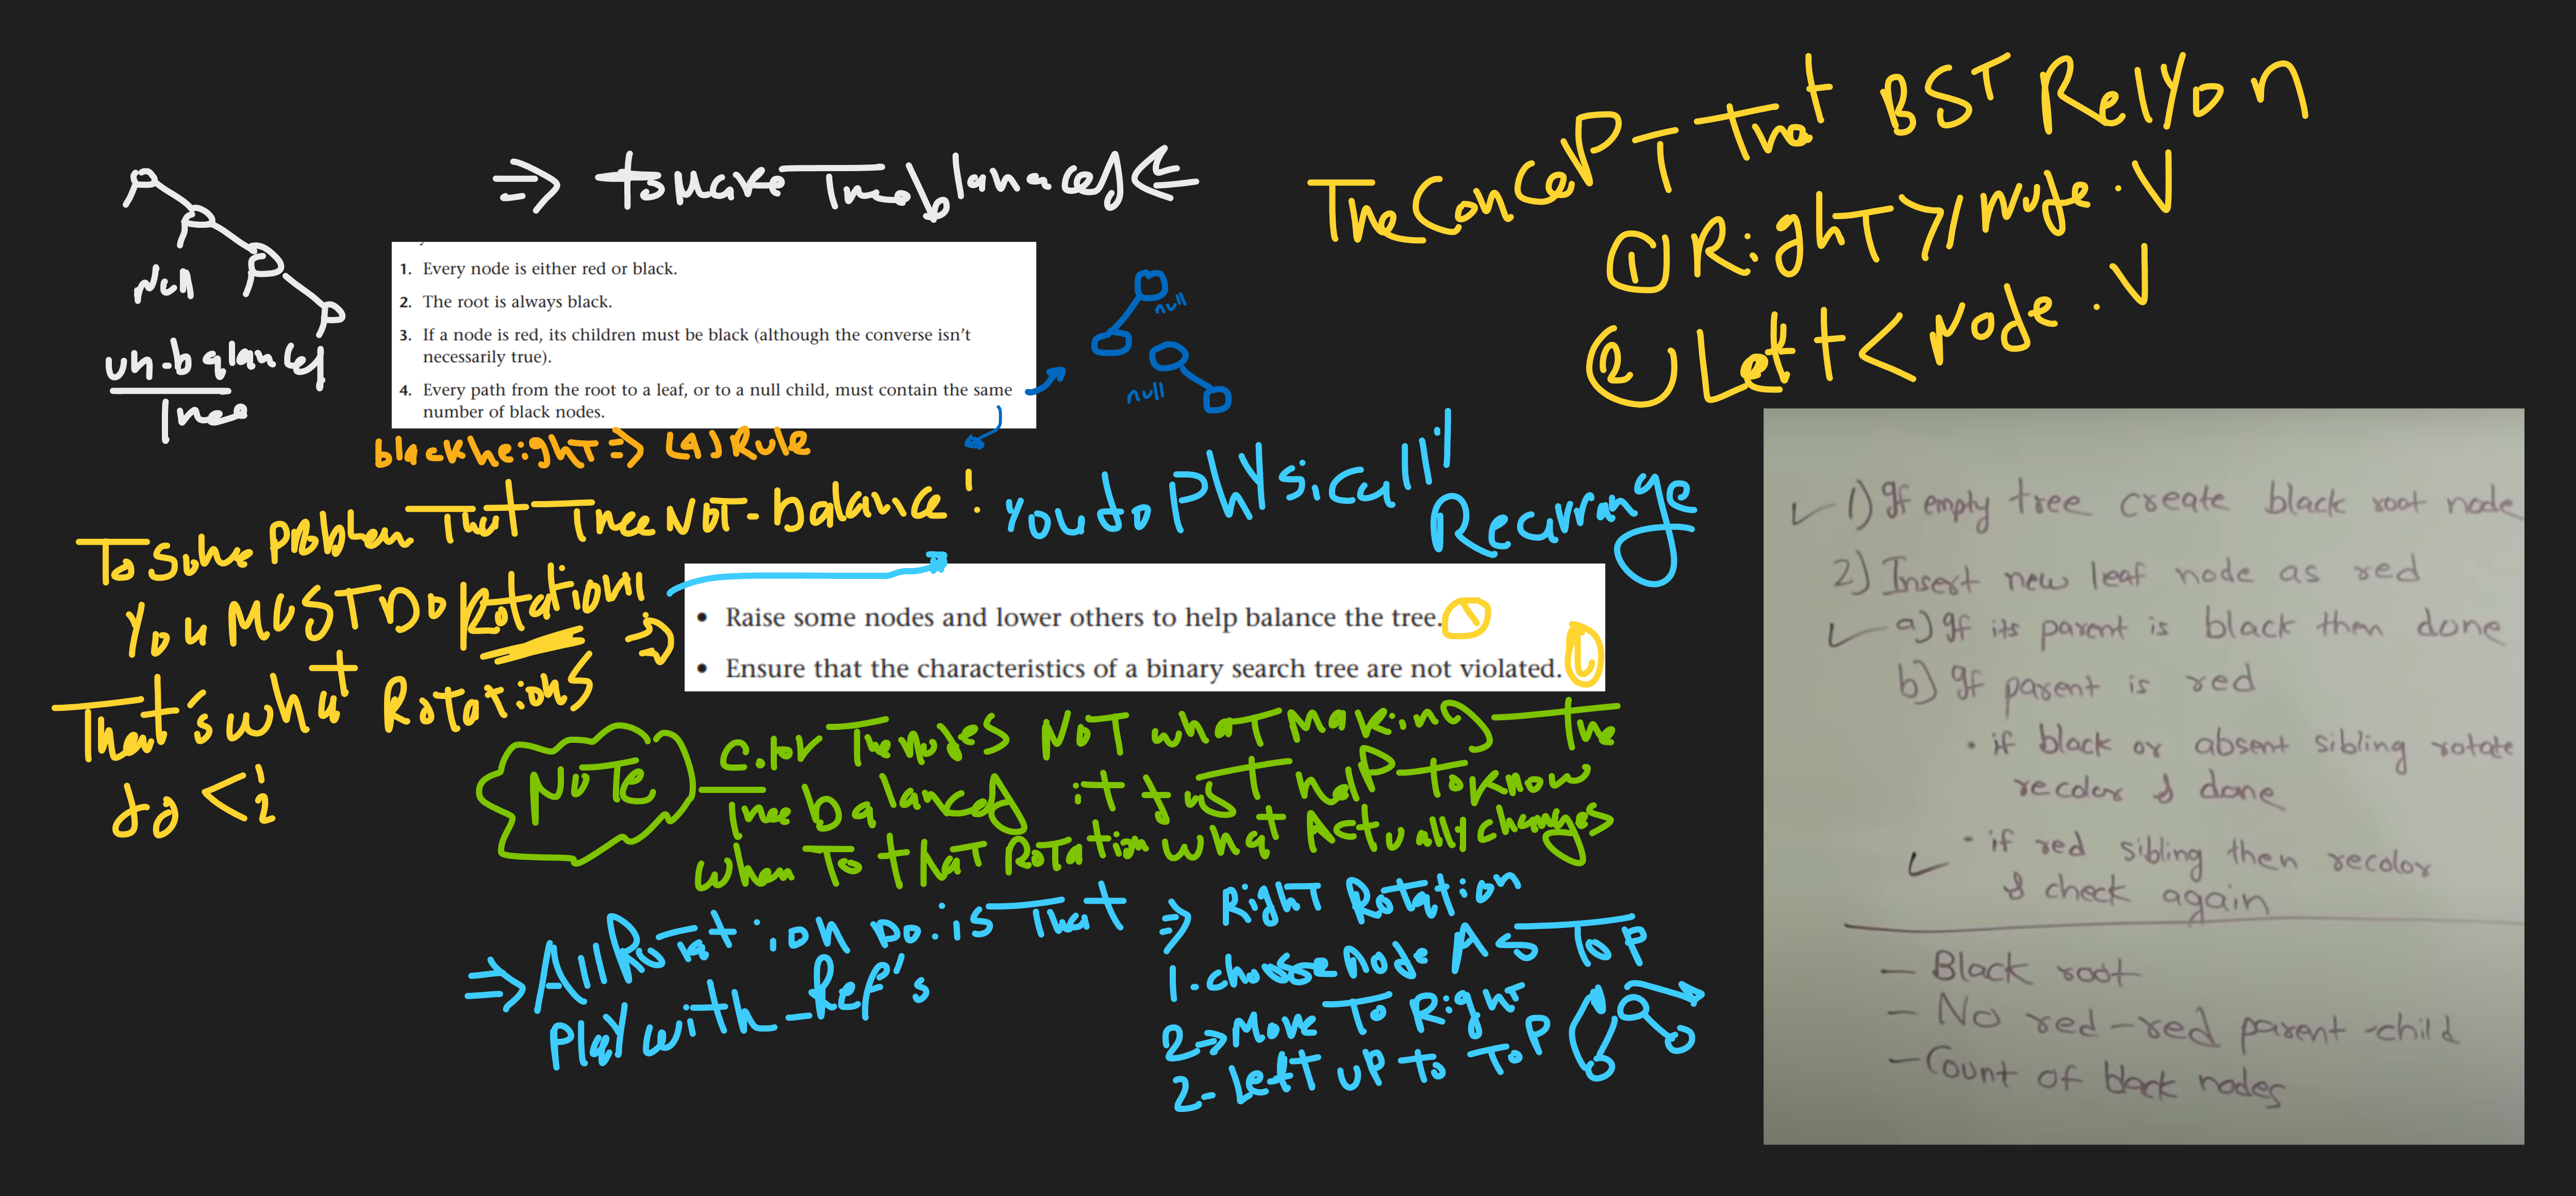 ⇒ to Make Tree blanaced ⇐
Null
un-balanced
Tree
1. Every node is either red or black.
2. The root is always black.
3. If a node is red, its children must be black (although the converse isn't
necessarily true).
4. Every path from the root to a leaf, or to a null child, must contain the same
number of black nodes.
null
null
black height ⇒ (4) Rule
The ConcePT That BST Rely on
① Right ≥ Node.V
② Left < Node.V
To Solve Problem That Tree NOT-balance!
You MUST DO Rotation
That's what Rotations
do
You do Physically
Rearrange
• Raise some nodes and lower others to help balance the tree.
• Ensure that the characteristics of a binary search tree are not violated.
NOTE
Color The nodes NOT what Making The
Tree balanced it just help To know
when To that Rotation what Actually changes
⇒ All Rotation Do is That
Play with_Ref's
⇒ Right Rotation
1. choose Node As Top
2→ Move To Right
2- Left up to Top
1) If empty tree create black root node
2) Insert new leaf node as red
a) If its parent is black then done
b) If parent is red
• if black or absent sibling rotate
recolor & done
• if red sibling then recolor
& check again
— Black root
— No red-red parent-child
— Count of black nodes